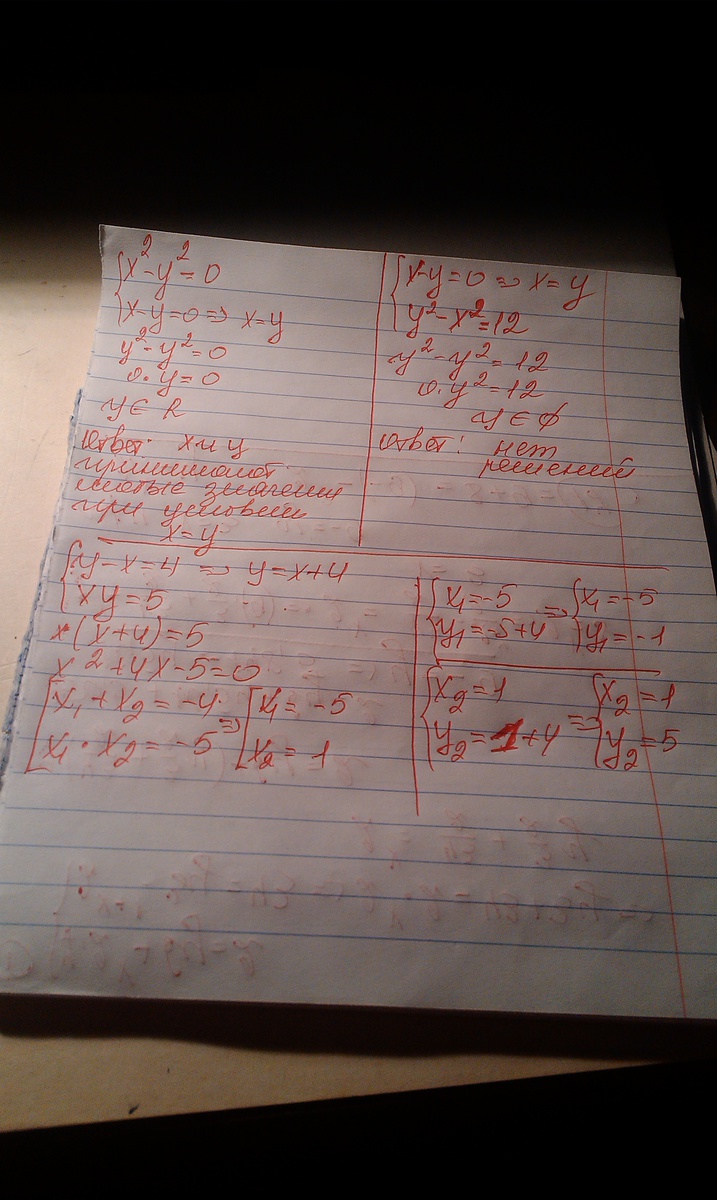 {x² - y² = 0
{x - y = 0 ⇒ x = y
y² - y² = 0
0 · y = 0
y ∈ R
Ответ: x и y
принимают
любые значения
при условии
x = y
{x - y = 0 ⇒ x = y
{y² - x² = 12
y² - y² = 12
0 · y² = 12
y ∈ ϕ
Ответ: нет
решений
{y - x = 4 ⇒ y = x + 4
{xy = 5
x(x + 4) = 5
x² + 4x - 5 = 0
[x₁ + x₂ = -4 ⇒ [x₁ = -5
[x₁ · x₂ = -5 [x₂ = 1
{x₁ = -5 ⇒ {x₁ = -5
{y₁ = -5 + 4 {y₁ = -1
{x₂ = 1 {x₂ = 1
{y₂ = 1 + 4 ⇒ {y₂ = 5